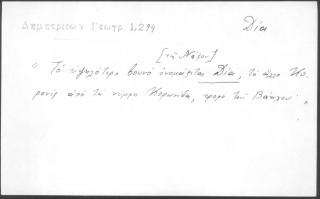 Δημητριέων Γεωγρ. 1,294
Δία
[τῆς Νάξου]
"Τὸ ὑψηλότερο βουνὸ ὀνομάζεται Δία, τὸ ἄλλο Κο-
ρωνίς ἀπὸ τὴ νύμφη Κορωνίδα, τροφὸ τοῦ Βάκχου"